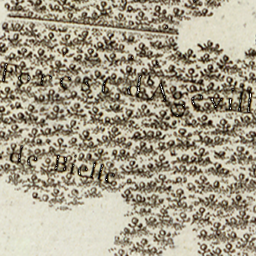 Forest d'Agevill
de Bielle